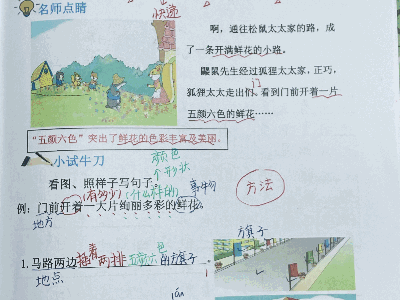 名师点睛
快递
啊，通往松鼠太太家的路，成
了一条开满鲜花的小路。
鼹鼠先生经过狐狸太太家，正巧，
狐狸太太走出门，看到门前开着一片
五颜六色的花……
“五颜六色”突出了鲜花的色彩丰富及美丽。
小试牛刀
颜色
个 形状
看图、照样子写句子。
(有多少) (什么样的) 事物
方法
例：门前开着一大片绚丽多彩的鲜花。
地方
方旗子
1.马路两边插着两排五颜六色的方旗子
地点